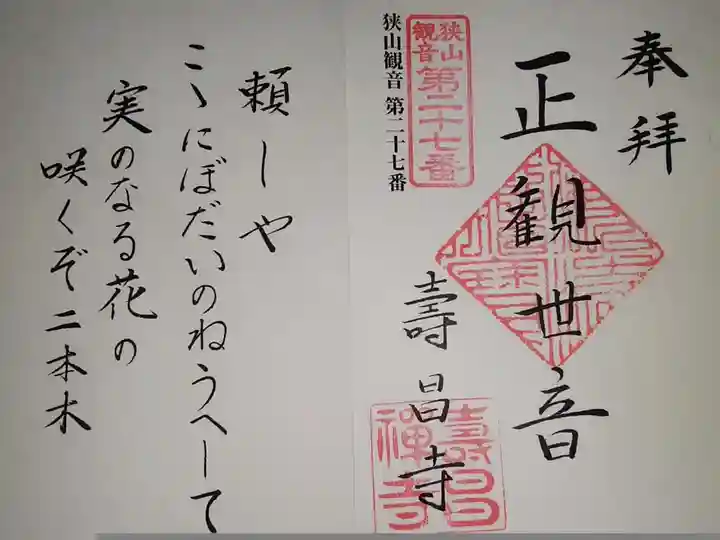 奉拝
正観世音
狭山観音
第二十七番
狭山観音 第二十七番
壽昌寺
壽昌
禅寺
頼しや
こゝにぼだいのねうへして
実のなる花の
咲くぞ二本木